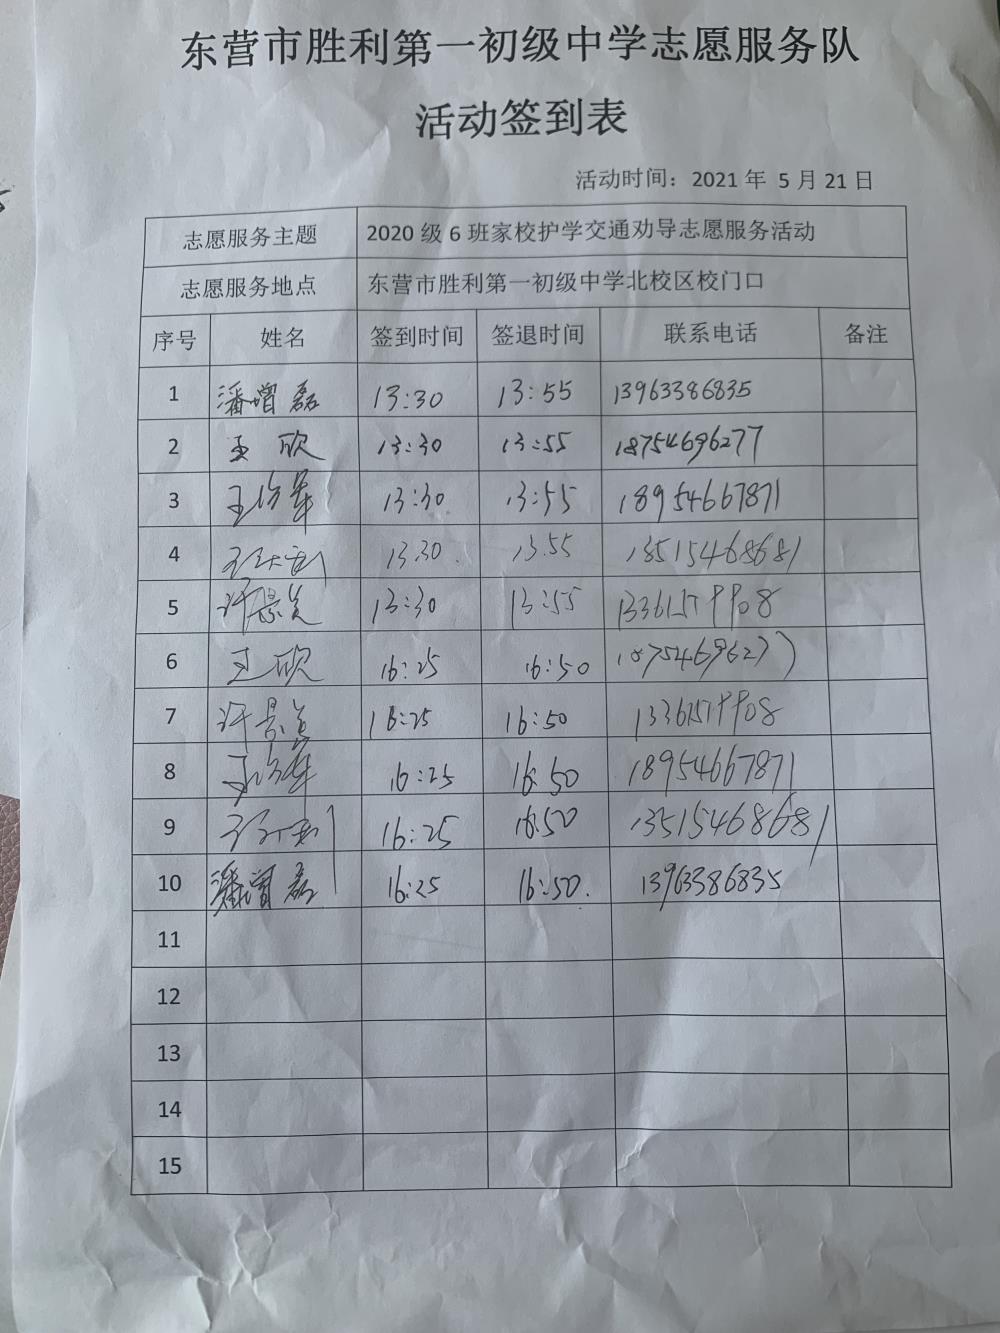 东营市胜利第一初级中学志愿服务队
活动签到表
活动时间：2021 年 5 月 21 日
志愿服务主题 2020 级 6 班家校护学交通劝导志愿服务活动
志愿服务地点 东营市胜利第一初级中学北校区校门口
序号 姓名 签到时间 签退时间 联系电话 备注
1 潘增磊 13:30 13:55 13963386835
2 王欣 13:30 13:55 18754696277
3 13:30 13:55 18954667871
4 13.30 13.55 13515468681
5 13:30 13:55 13361519908
6 王欣 16:25 16:50 18754696277
7 16:25 16:50 13361519908
8 16:25 16:50 18954667871
9 16:25 16:50 13515468681
10 潘增磊 16:25 16:50. 13963386835
11
12
13
14
15